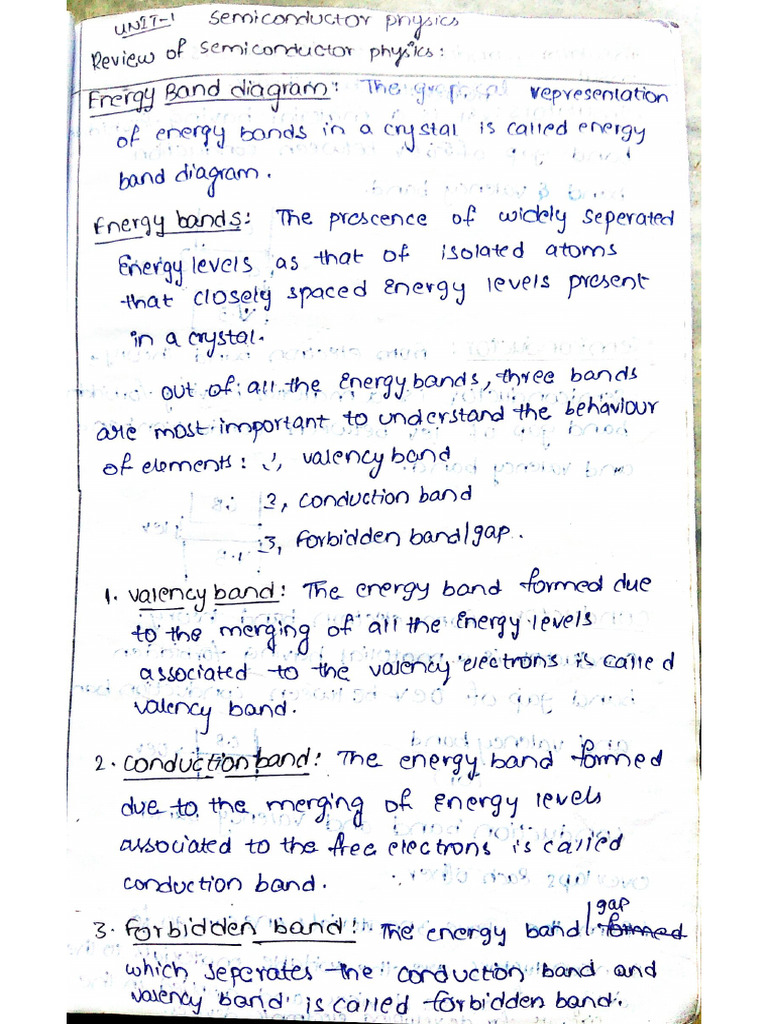 UNIT-1 Semiconductor physics
Review of semiconductor physics:
Energy Band diagram: The graphical representation
of energy bands in a crystal is called energy
band diagram.
Energy bands: The prescence of widely seperated
Energy levels as that of isolated atoms
that closely spaced Energy levels present
in a crystal.
out of all the Energy bands, three bands
are most important to understand the behaviour
of elements: 1, valency band
2, conduction band
3, Forbidden band/gap.
1. valency band: The energy band formed due
to the merging of all the Energy levels
associated to the valency electrons is called
valency band.
2. conduction band: The energy band formed
due to the merging of Energy levels
associated to the free electrons is called
conduction band.
3. Forbidden band: The energy band /gap formed
which seperates the conduction band and
valency band is called forbidden band.